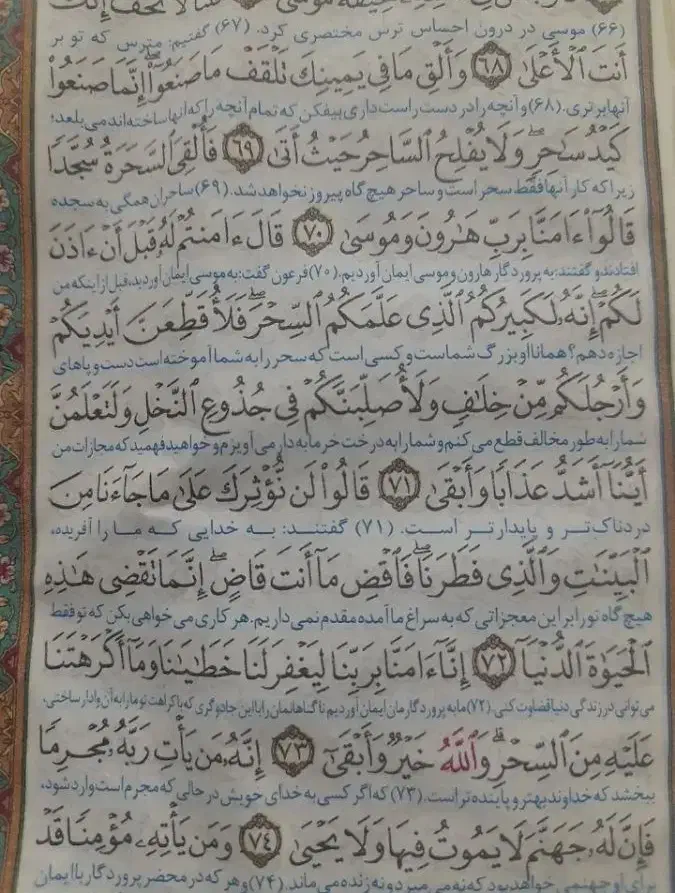 (۶۶) موسی در درون احساس ترس مختصری کرد. (۶۷) گفتیم: مترس که تو بر
أَنتَ ٱلْأَعْلَىٰ ۝٦٨ وَأَلْقِ مَا فِي يَمِينِكَ تَلْقَفْ مَا صَنَعُوٓا۟ ۖ إِنَّمَا صَنَعُوا۟
آنها برتری. (۶۸) و آنچه را در دست راست داری بیفکن که تمام آنچه را که آنها ساخته‌اند می‌بلعد؛
كَيْدُ سَٰحِرٍ ۖ وَلَا يُفْلِحُ ٱلسَّاحِرُ حَيْثُ أَتَىٰ ۝٦٩ فَأُلْقِيَ ٱلسَّحَرَةُ سُجَّدًا
زیرا که کار آنها فقط سحر است و ساحر هیچ گاه پیروز نخواهد شد. (۶۹) ساحران همگی به سجده
قَالُوٓا۟ ءَامَنَّا بِرَبِّ هَٰرُونَ وَمُوسَىٰ ۝٧٠ قَالَ ءَامَنتُمْ لَهُۥ قَبْلَ أَنْ ءَاذَنَ
افتادند و گفتند: به پروردگار هارون و موسی ایمان آوردیم. (۷۰) فرعون گفت: به موسی ایمان آوردید، قبل از اینکه من
لَكُمْ ۖ إِنَّهُۥ لَكَبِيرُكُمُ ٱلَّذِي عَلَّمَكُمُ ٱلسِّحْرَ ۖ فَلَأُقَطِّعَنَّ أَيْدِيَكُمْ
اجازه دهم؟ همانا او بزرگ شماست و کسی است که سحر را به شما آموخته است دست و پاهای
وَأَرْجُلَكُم مِّنْ خِلَٰفٍ وَلَأُصَلِّبَنَّكُمْ فِي جُذُوعِ ٱلنَّخْلِ وَلَتَعْلَمُنَّ
شما را به طور مخالف قطع می کنم و شما را به درخت خرما به دار می آویزم و خواهید فهمید که مجازات من
أَيُّنَآ أَشَدُّ عَذَابًا وَأَبْقَىٰ ۝٧١ قَالُوا۟ لَن نُّؤْثِرَكَ عَلَىٰ مَا جَآءَنَا مِنَ
دردناک‌تر و پایدارتر است. (۷۱) گفتند: به خدایی که ما را آفریده،
ٱلْبَيِّنَٰتِ وَٱلَّذِي فَطَرَنَا ۖ فَٱقْضِ مَآ أَنتَ قَاضٍ ۖ إِنَّمَا تَقْضِي هَٰذِهِ
هیچ گاه تو را بر این معجزاتی که به سراغ ما آمده مقدم نمی داریم. هر کاری می خواهی بکن که تو فقط
ٱلْحَيَوٰةَ ٱلدُّنْيَآ ۝٧٢ إِنَّآ ءَامَنَّا بِرَبِّنَا لِيَغْفِرَ لَنَا خَطَٰيَٰنَا وَمَآ أَكْرَهْتَنَا
می توانی در زندگی دنیا قضاوت کنی. (۷۲) ما به پروردگارمان ایمان آوردیم تا گناهانمان را با این جادوگری که با کراهت تو ما را به آن وادار ساختی،
عَلَيْهِ مِنَ ٱلسِّحْرِ ۗ وَٱللَّهُ خَيْرٌ وَأَبْقَىٰٓ ۝٧٣ إِنَّهُۥ مَن يَأْتِ رَبَّهُۥ مُجْرِمًا
ببخشد که خداوند بهتر و پاینده تر است. (۷۳) که اگر کسی به خدای خویش در حالی که مجرم است وارد شود،
فَإِنَّ لَهُۥ جَهَنَّمَ لَا يَمُوتُ فِيهَا وَلَا يَحْيَىٰ ۝٧٤ وَمَن يَأْتِهِۦ مُؤْمِنًا قَدْ
برای او جهنمی خواهد بود که نه می میرد و نه زنده می ماند. (۷۴) و هر که در محضر پروردگار با ایمان